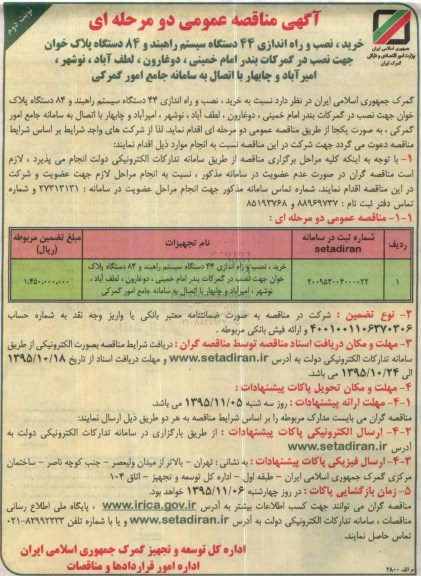 نوبت دوم
جمهوری اسلامی ایران
وزارت امور اقتصادی و دارائی
گمرک ایران
آگهی مناقصه عمومی دو مرحله ای
خرید ، نصب و راه اندازی ۴۴ دستگاه سیستم راهبند و ۸۴ دستگاه پلاک خوان
جهت نصب در گمرکات بندر امام خمینی ، دوغارون ، لطف آباد ، نوشهر ،
امیر آباد و چابهار با اتصال به سامانه جامع امور گمرکی
گمرک جمهوری اسلامی ایران در نظر دارد نسبت به خرید ، نصب و راه اندازی ۴۴ دستگاه سیستم راهبند و ۸۴ دستگاه پلاک
خوان جهت نصب در گمرکات بندر امام خمینی ، دوغارون ، لطف آباد ، نوشهر ، امیرآباد و چابهار با اتصال به سامانه جامع امور
گمرکی ، به صورت یکجا از طریق مناقصه عمومی دو مرحله ای اقدام نماید. لذا از شرکت های واجد شرایط بر اساس شرایط
مناقصه دعوت می گردد جهت شرکت در این مناقصه نسبت به انجام موارد ذیل اقدام نمایند:
۱- با توجه به اینکه کلیه مراحل برگزاری مناقصه از طریق سامانه تدارکات الکترونیکی دولت انجام می پذیرد ، لازم
است مناقصه گران در صورت عدم عضویت در سامانه مذکور ، نسبت به انجام مراحل لازم جهت عضویت و شرکت
در این مناقصه اقدام نمایند. شماره تماس سامانه مذکور جهت انجام مراحل عضویت در سامانه : ۲۷۳۱۳۱۳۱ و شماره
تماس دفتر ثبت نام : ۸۸۹۶۹۷۳۷ و ۸۵۱۹۳۷۶۸
۱-۱- مناقصه عمومی دو مرحله ای :
ردیف
شماره ثبت در سامانه setadiran
نام تجهیزات
مبلغ تضمین مربوطه (ریال)
۱
۲۰۰۹۵۳۰۰۴۰۰۰۰۲۲
خرید ، نصب و راه اندازی ۴۴ دستگاه سیستم راهبند و ۸۴ دستگاه پلاک
خوان جهت نصب در گمرکات بندر امام خمینی ، دوغارون ، لطف آباد ،
نوشهر ، امیرآباد و چابهار با اتصال به سامانه جامع امور گمرکی
۱.۴۵۰.۰۰۰.۰۰۰
۲- نوع تضمین : شرکت در مناقصه به صورت ضمانتنامه معتبر بانکی یا واریز وجه نقد به شماره حساب
۴۰۰۱۰۰۱۱۰۶۳۷۰۳۰۶ و ارائه فیش بانکی مربوطه .
۳- مهلت و مکان دریافت اسناد مناقصه توسط مناقصه گران : دریافت شرایط مناقصه بصورت الکترونیکی از طریق
سامانه تدارکات الکترونیکی دولت به آدرس www.setadiran.ir و مهلت دریافت اسناد از تاریخ ۱۳۹۵/۱۰/۱۸
الی ۱۳۹۵/۱۰/۲۴ می باشد.
۴- مهلت و مکان تحویل پاکات پیشنهادات :
۴-۱- مهلت ارائه پیشنهادات : روز سه شنبه ۱۳۹۵/۱۱/۰۵ می باشد.
مناقصه گران می بایست مدارک مربوطه را بر اساس شرایط مناقصه به هر دو طریق ذیل ارسال نمایند:
۴-۲- ارسال الکترونیکی پاکات پیشنهادات : از طریق بارگزاری در سامانه تدارکات الکترونیکی دولت به
آدرس www.setadiran.ir
۴-۳- ارسال فیزیکی پاکات پیشنهادات : به نشانی : تهران - بالاتر از میدان ولیعصر - جنب کوچه ناصر - ساختمان
مرکزی گمرک جمهوری اسلامی ایران - طبقه اول - اداره کل توسعه و تجهیز - اتاق ۱۰۴
۵- زمان بازگشایی پاکات : در روز چهارشنبه ۱۳۹۵/۱۱/۰۶ خواهد بود.
مناقصه گران می توانند جهت کسب اطلاعات بیشتر به آدرس www.irica.gov.ir ، پایگاه ملی اطلاع رسانی
مناقصات ، سامانه تدارکات الکترونیکی دولت به آدرس www.setadiran.ir و یا با شماره تلفن ۸۲۹۹۲۲۳۳-۰۲۱
تماس حاصل نمایند.
اداره کل توسعه و تجهیز گمرک جمهوری اسلامی ایران
اداره امور قراردادها و مناقصات
م الف ۲۸۰۰